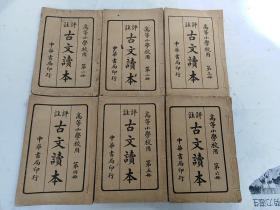 高等小學校用 第一册
評註 古文讀本
中華書局印行
高等小學校用 第二册
評註 古文讀本
中華書局印行
高等小學校用 第三册
評註 古文讀本
中華書局印行
高等小學校用 第四册
評註 古文讀本
中華書局印行
高等小學校用 第五册
評註 古文讀本
中華書局印行
高等小學校用 第六册
評註 古文讀本
中華書局印行